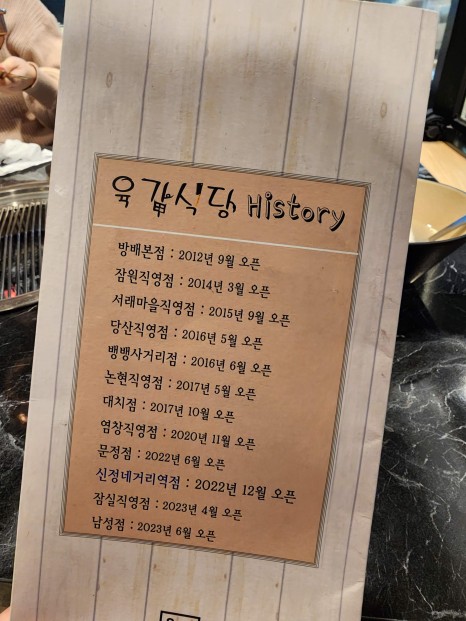 육갑식당 History
방배본점 : 2012년 9월 오픈
잠원직영점 : 2014년 3월 오픈
서래마을직영점 : 2015년 9월 오픈
당산직영점 : 2016년 5월 오픈
뱅뱅사거리점 : 2016년 6월 오픈
논현직영점 : 2017년 5월 오픈
대치점 : 2017년 10월 오픈
염창직영점 : 2020년 11월 오픈
문정점 : 2022년 6월 오픈
신정네거리역점 : 2022년 12월 오픈
잠실직영점 : 2023년 4월 오픈
남성점 : 2023년 6월 오픈